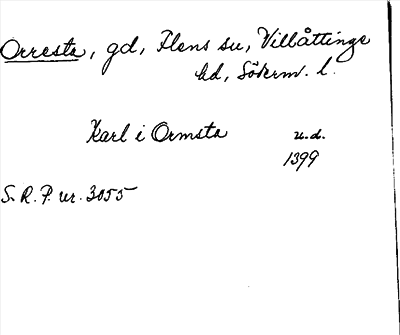 Orresta, gd, Flens sn, Villåttinge
hd, Söderm. l.
Karl i Ormsta u.d.
1399
S. R. P. nr. 3055